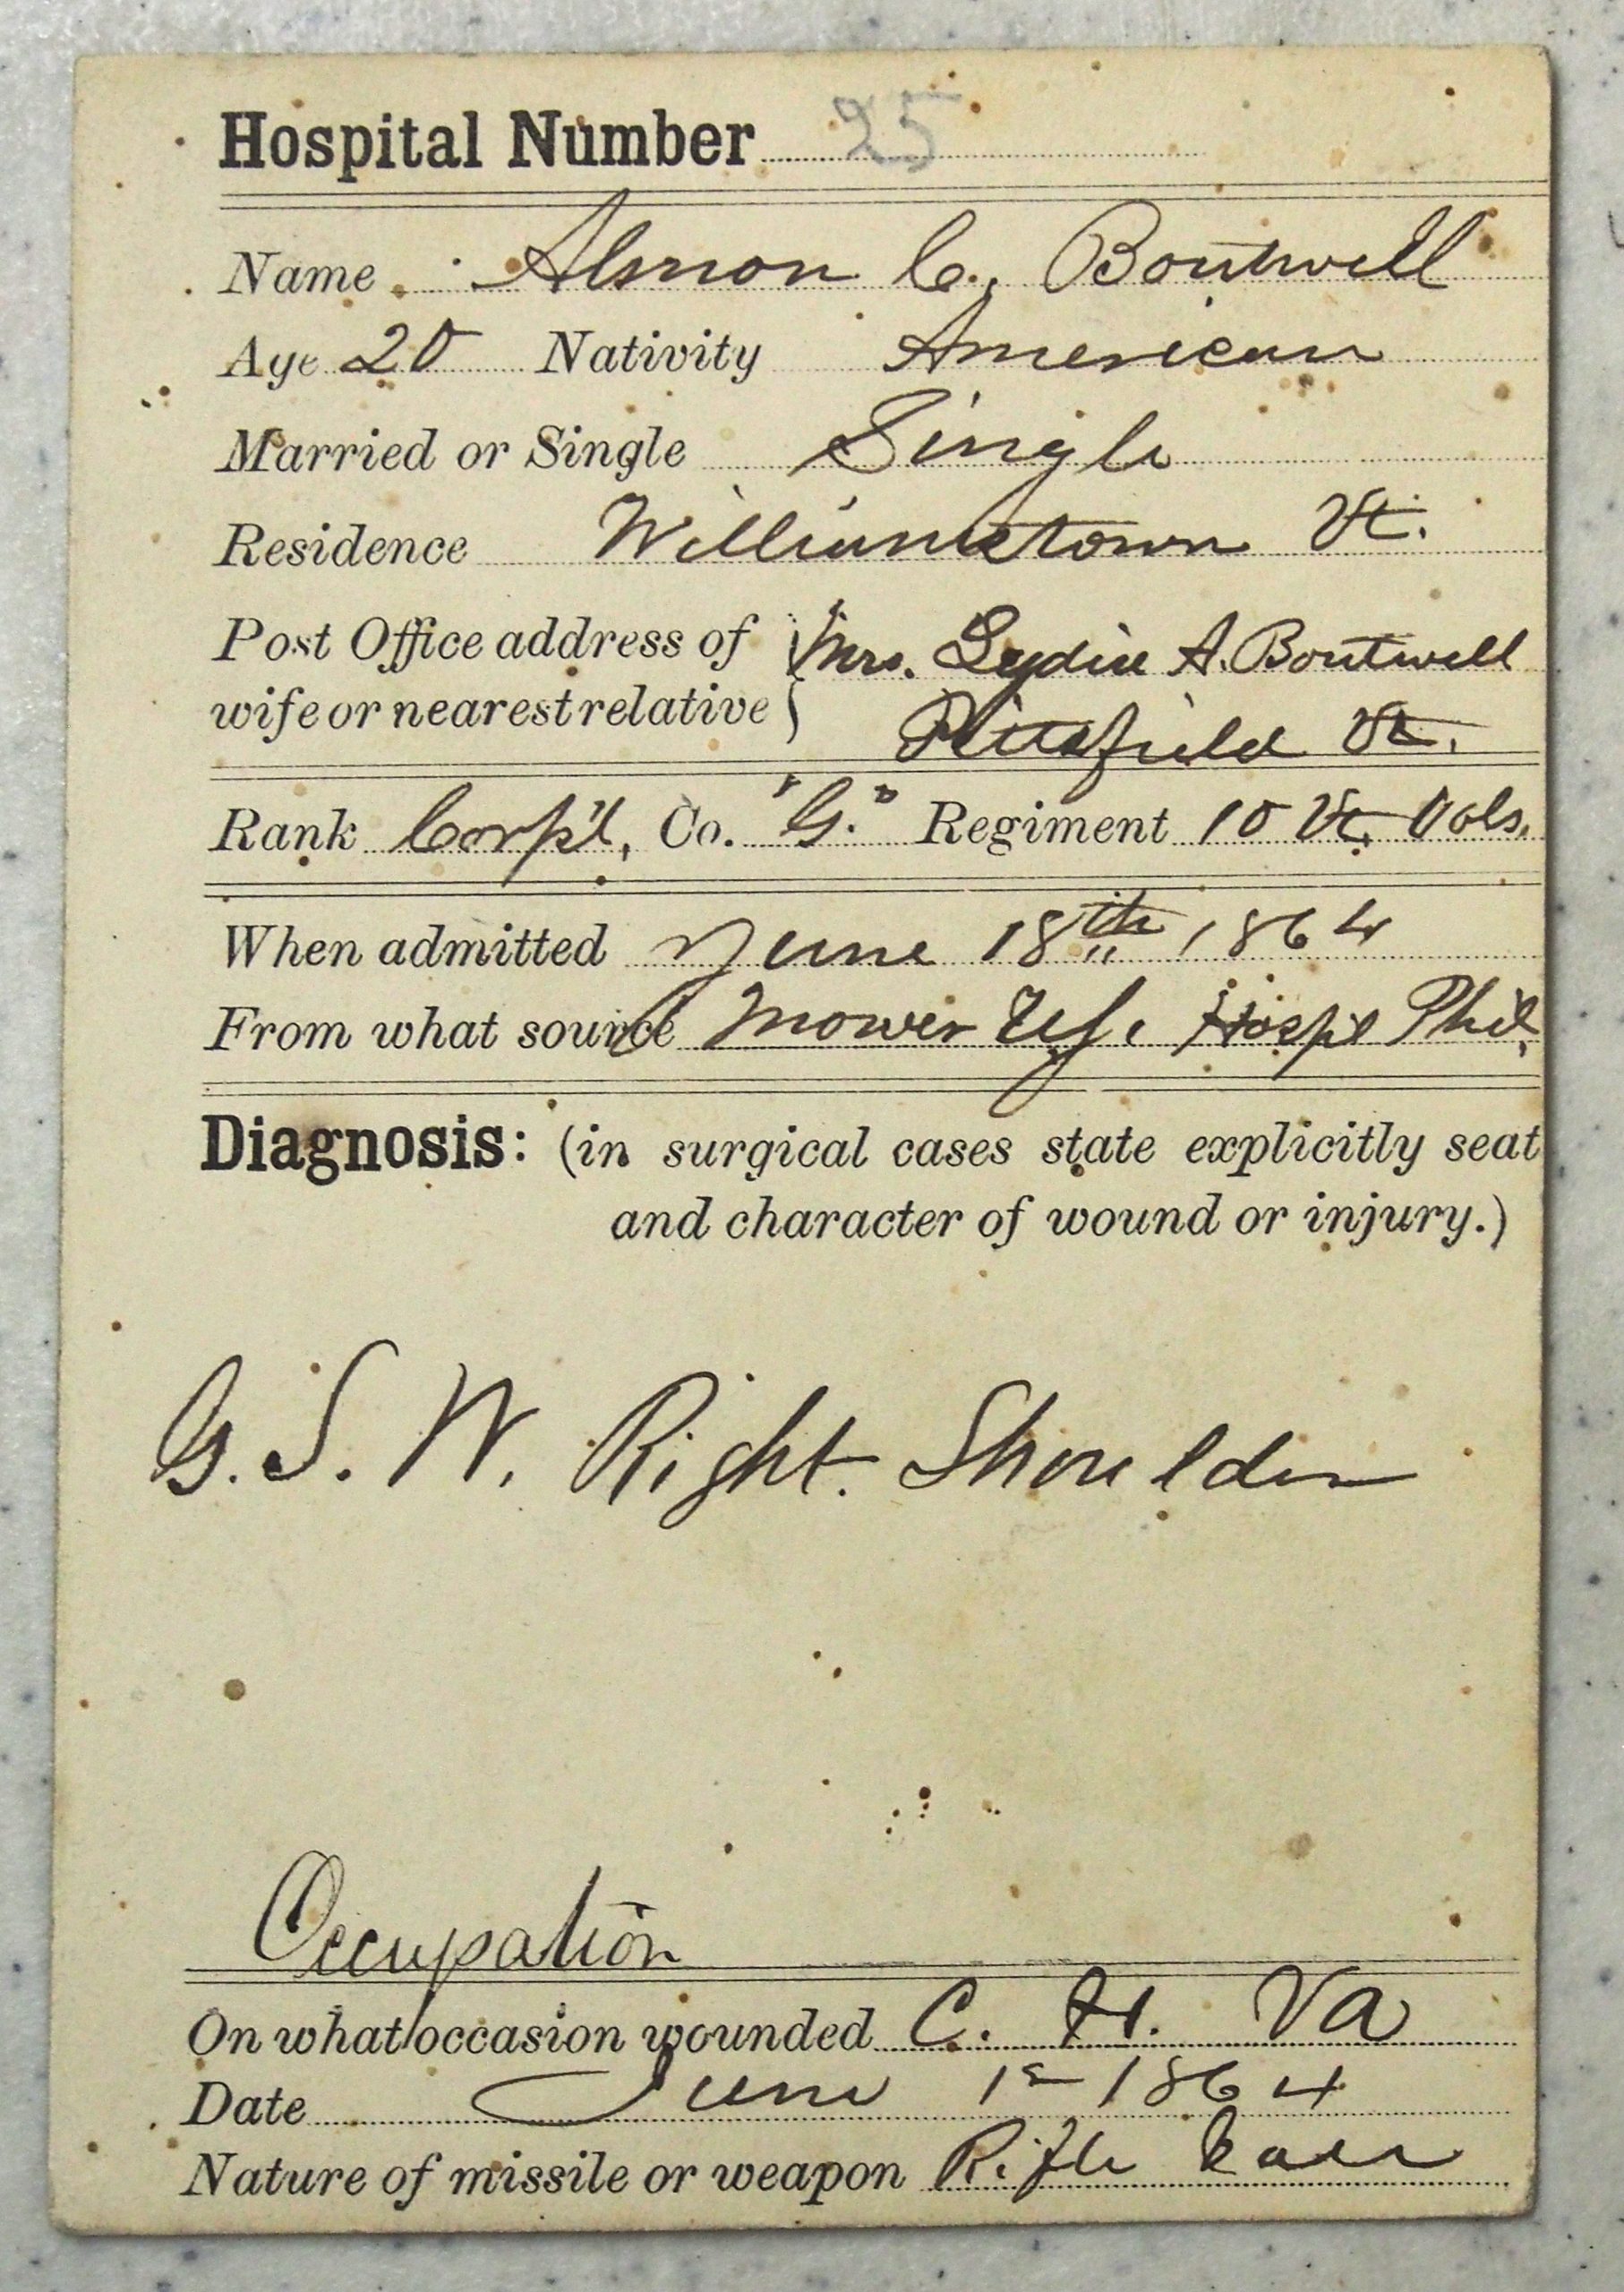 Hospital Number 25
Name Almon C. Boutwell
Age 20 Nativity American
Married or Single Single
Residence Williamstown Vt.
Post Office address of wife or nearest relative } Mrs. Lydia A. Boutwell
Pittsfield Vt.
Rank Corp'l, Co. "G." Regiment 10 Vt. Vols.
When admitted June 18th, 1864
From what source Mower Hosp'l Phil.
Diagnosis: (in surgical cases state explicitly seat
and character of wound or injury.)
G. S. W. Right. Shoulder
Occupation
On what occasion wounded C. H. Va
Date June 1st 1864
Nature of missile or weapon Rifle ball